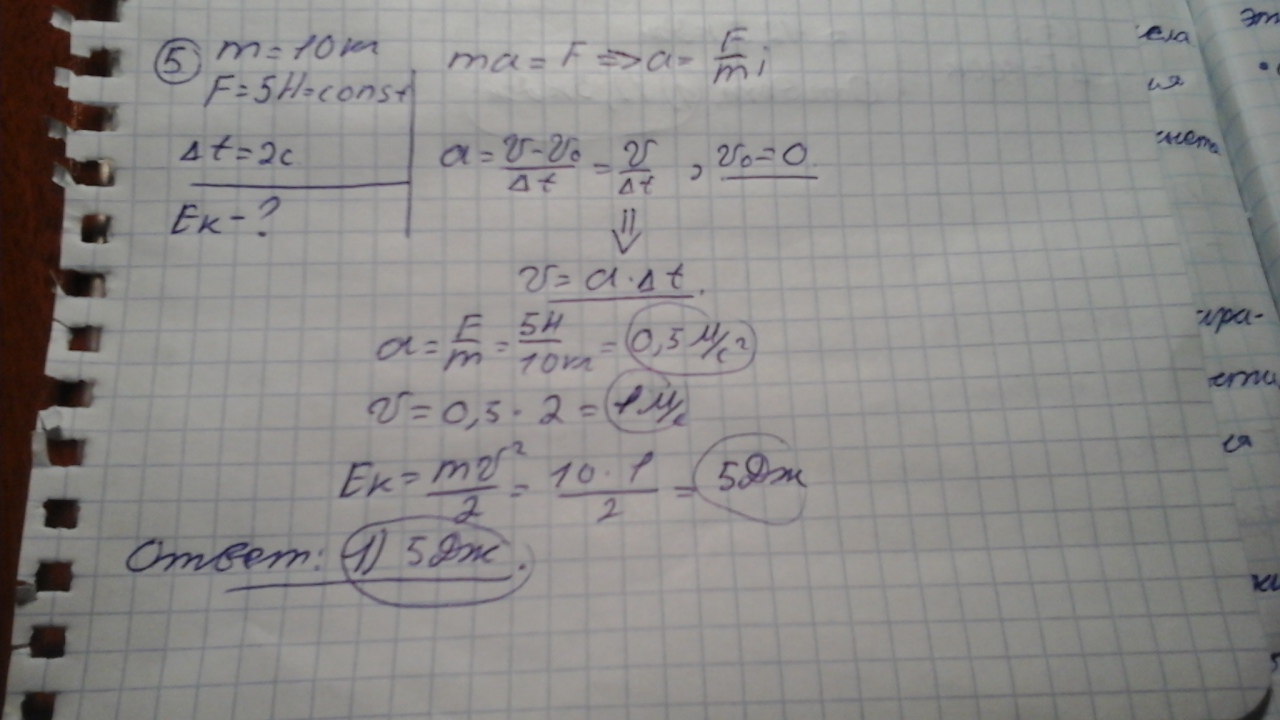 5 m = 10 кг
F = 5H = const
Δt = 2c
Eк - ?
ma = F => a = F/m ;
a = (v - v₀)/Δt = v/Δt , v₀ = 0
⇓
v = a · Δt.
a = F/m = 5H/10кг = 0,5 м/с²
v = 0,5 · 2 = 1 м/с
Eк = mv²/2 = 10 · 1/2 = 5 Дж
Ответ: 1) 5 Дж.